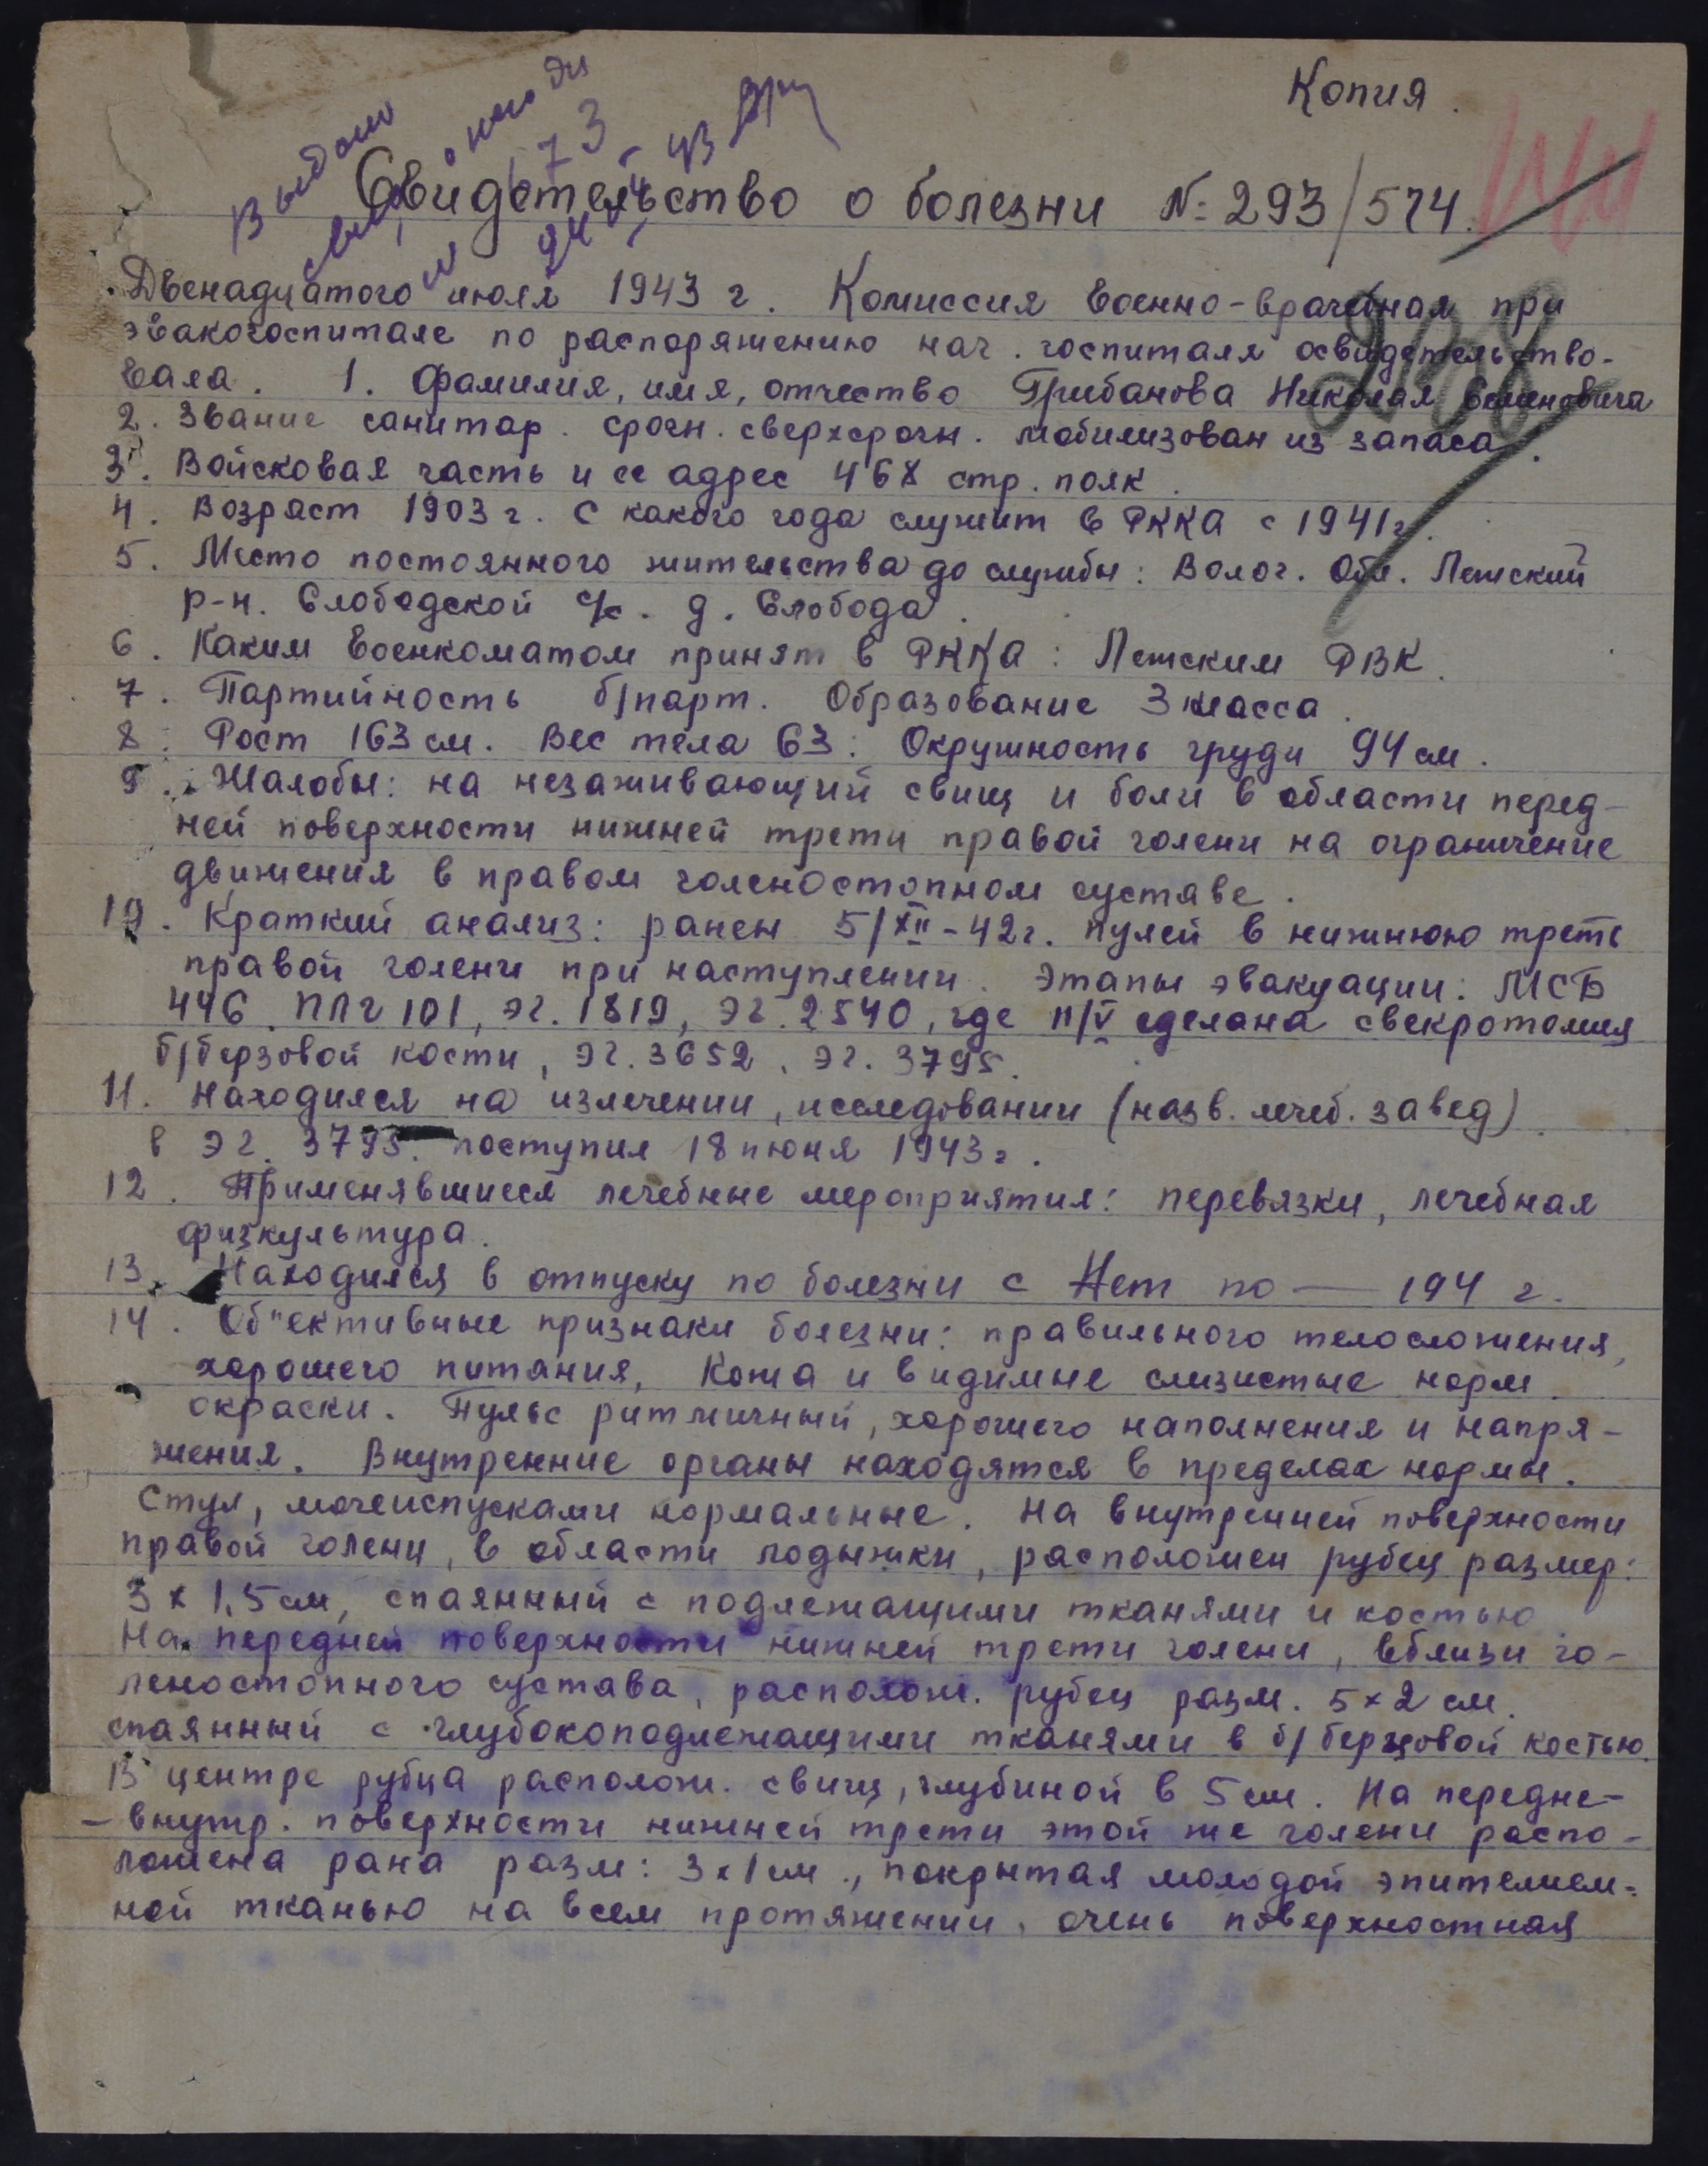 Копия.
Выдано
173
Свидетельство о болезни №: 293/574.
Двенадцатого июля 1943 г. Комиссия Военно-врачебная при
эвакогоспитале по распоряжению нач. госпиталя освидетельство-
вала. 1. Фамилия, имя, отчество Грибанова Николая Семеновича
2. Звание санитар. срочн. сверхсрочн. мобилизован из запаса.
3. Войсковая часть и ее адрес 468 стр. полк.
4. Возраст 1903 г. С какого года служит в РККА с 1941 г.
5. Место постоянного жительства до службы: Волог. Обл. Лежский
р-н. Слободской с/с. д. Слобода.
6. Каким Военкоматом принят в РККА: Лежским РВК.
7. Партийность б/парт. Образование 3 класса.
8. Рост 163 см. Вес тела 63: Окружность груди 94 см.
9. Жалобы: на незаживающий свищ и боли в области перед-
ней поверхности нижней трети правой голени на ограничение
движения в правом голеностопном суставе.
10. Краткий анализ: ранен 5/XII-42 г. пулей в нижнюю треть
правой голени при наступлении. Этапы эвакуации: МСБ
446. ППГ 101, ЭГ. 1819, ЭГ. 2540, где 11/V сделана свекротомия
б/берзовой кости, ЭГ. 3652, ЭГ. 3795.
11. Находился на излечении, исследовании (назв. лечеб. завед).
в ЭГ. 3795. поступил 18 июня 1943 г.
12. Применявшиеся лечебные мероприятия: перевязки, лечебная
физкультура.
13. Находился в отпуску по болезни с Нет по — 194 г.
14. Об"ективные признаки болезни: правильного телосложения,
хорошего питания, Кожа и видимые слизистые норм.
окраски. Пульс ритмичный, хорошего наполнения и напря-
жения. Внутренние органы находятся в пределах нормы.
Стул, мочеиспусками нормальные. На внутренней поверхности
правой голени, в области лодыжки, расположен рубец размер:
3 х 1,5 см, спаянный с подлежащими тканями и костью
На передней поверхности нижней трети голени, вблизи го-
леностопного сустава, располож. рубец разм. 5 х 2 см.
спаянный с глубокоподлежащими тканями в б/берцовой костью.
В центре рубца располож. свищ, глубиной в 5 см. На передне-
- внутр. поверхности нижней трети этой же голени распо-
ложена рана разм: 3 х 1 см., покрытая молодой эпителием-
ной тканью на всем протяжении, очень поверхностная